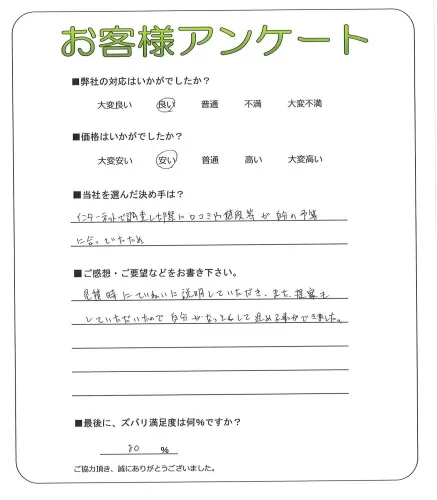 お客様アンケート
■弊社の対応はいかがでしたか？
大変良い 良い 普通 不満 大変不満
■価格はいかがでしたか？
大変安い 安い 普通 高い 大変高い
■当社を選んだ決め手は？
インターネットで調査した際に口コミや値段等が自分の予算
に合っていたため
■ご感想・ご要望などをお書き下さい。
見積時にていねいに説明していただき、また、提案も
していただいたので自分がなっとくして進める事ができました。
■最後に、ズバリ満足度は何％ですか？
80 ％
ご協力頂き、誠にありがとうございました。